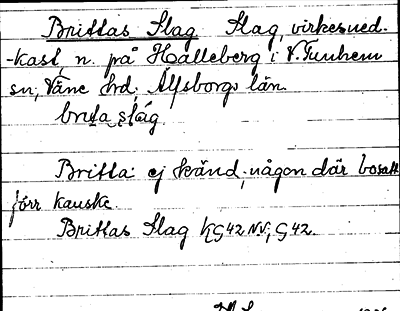 Brittas Slag Slag, virkesned-
-kast, n. på Halleberg i V. Tunhem
sn, Väne hrd, Älfsborgs län.
brı̣ta slág.
Britta ej känd, någon där bosatt
förr kanske.
Brittas Slag KG42NV, G42.